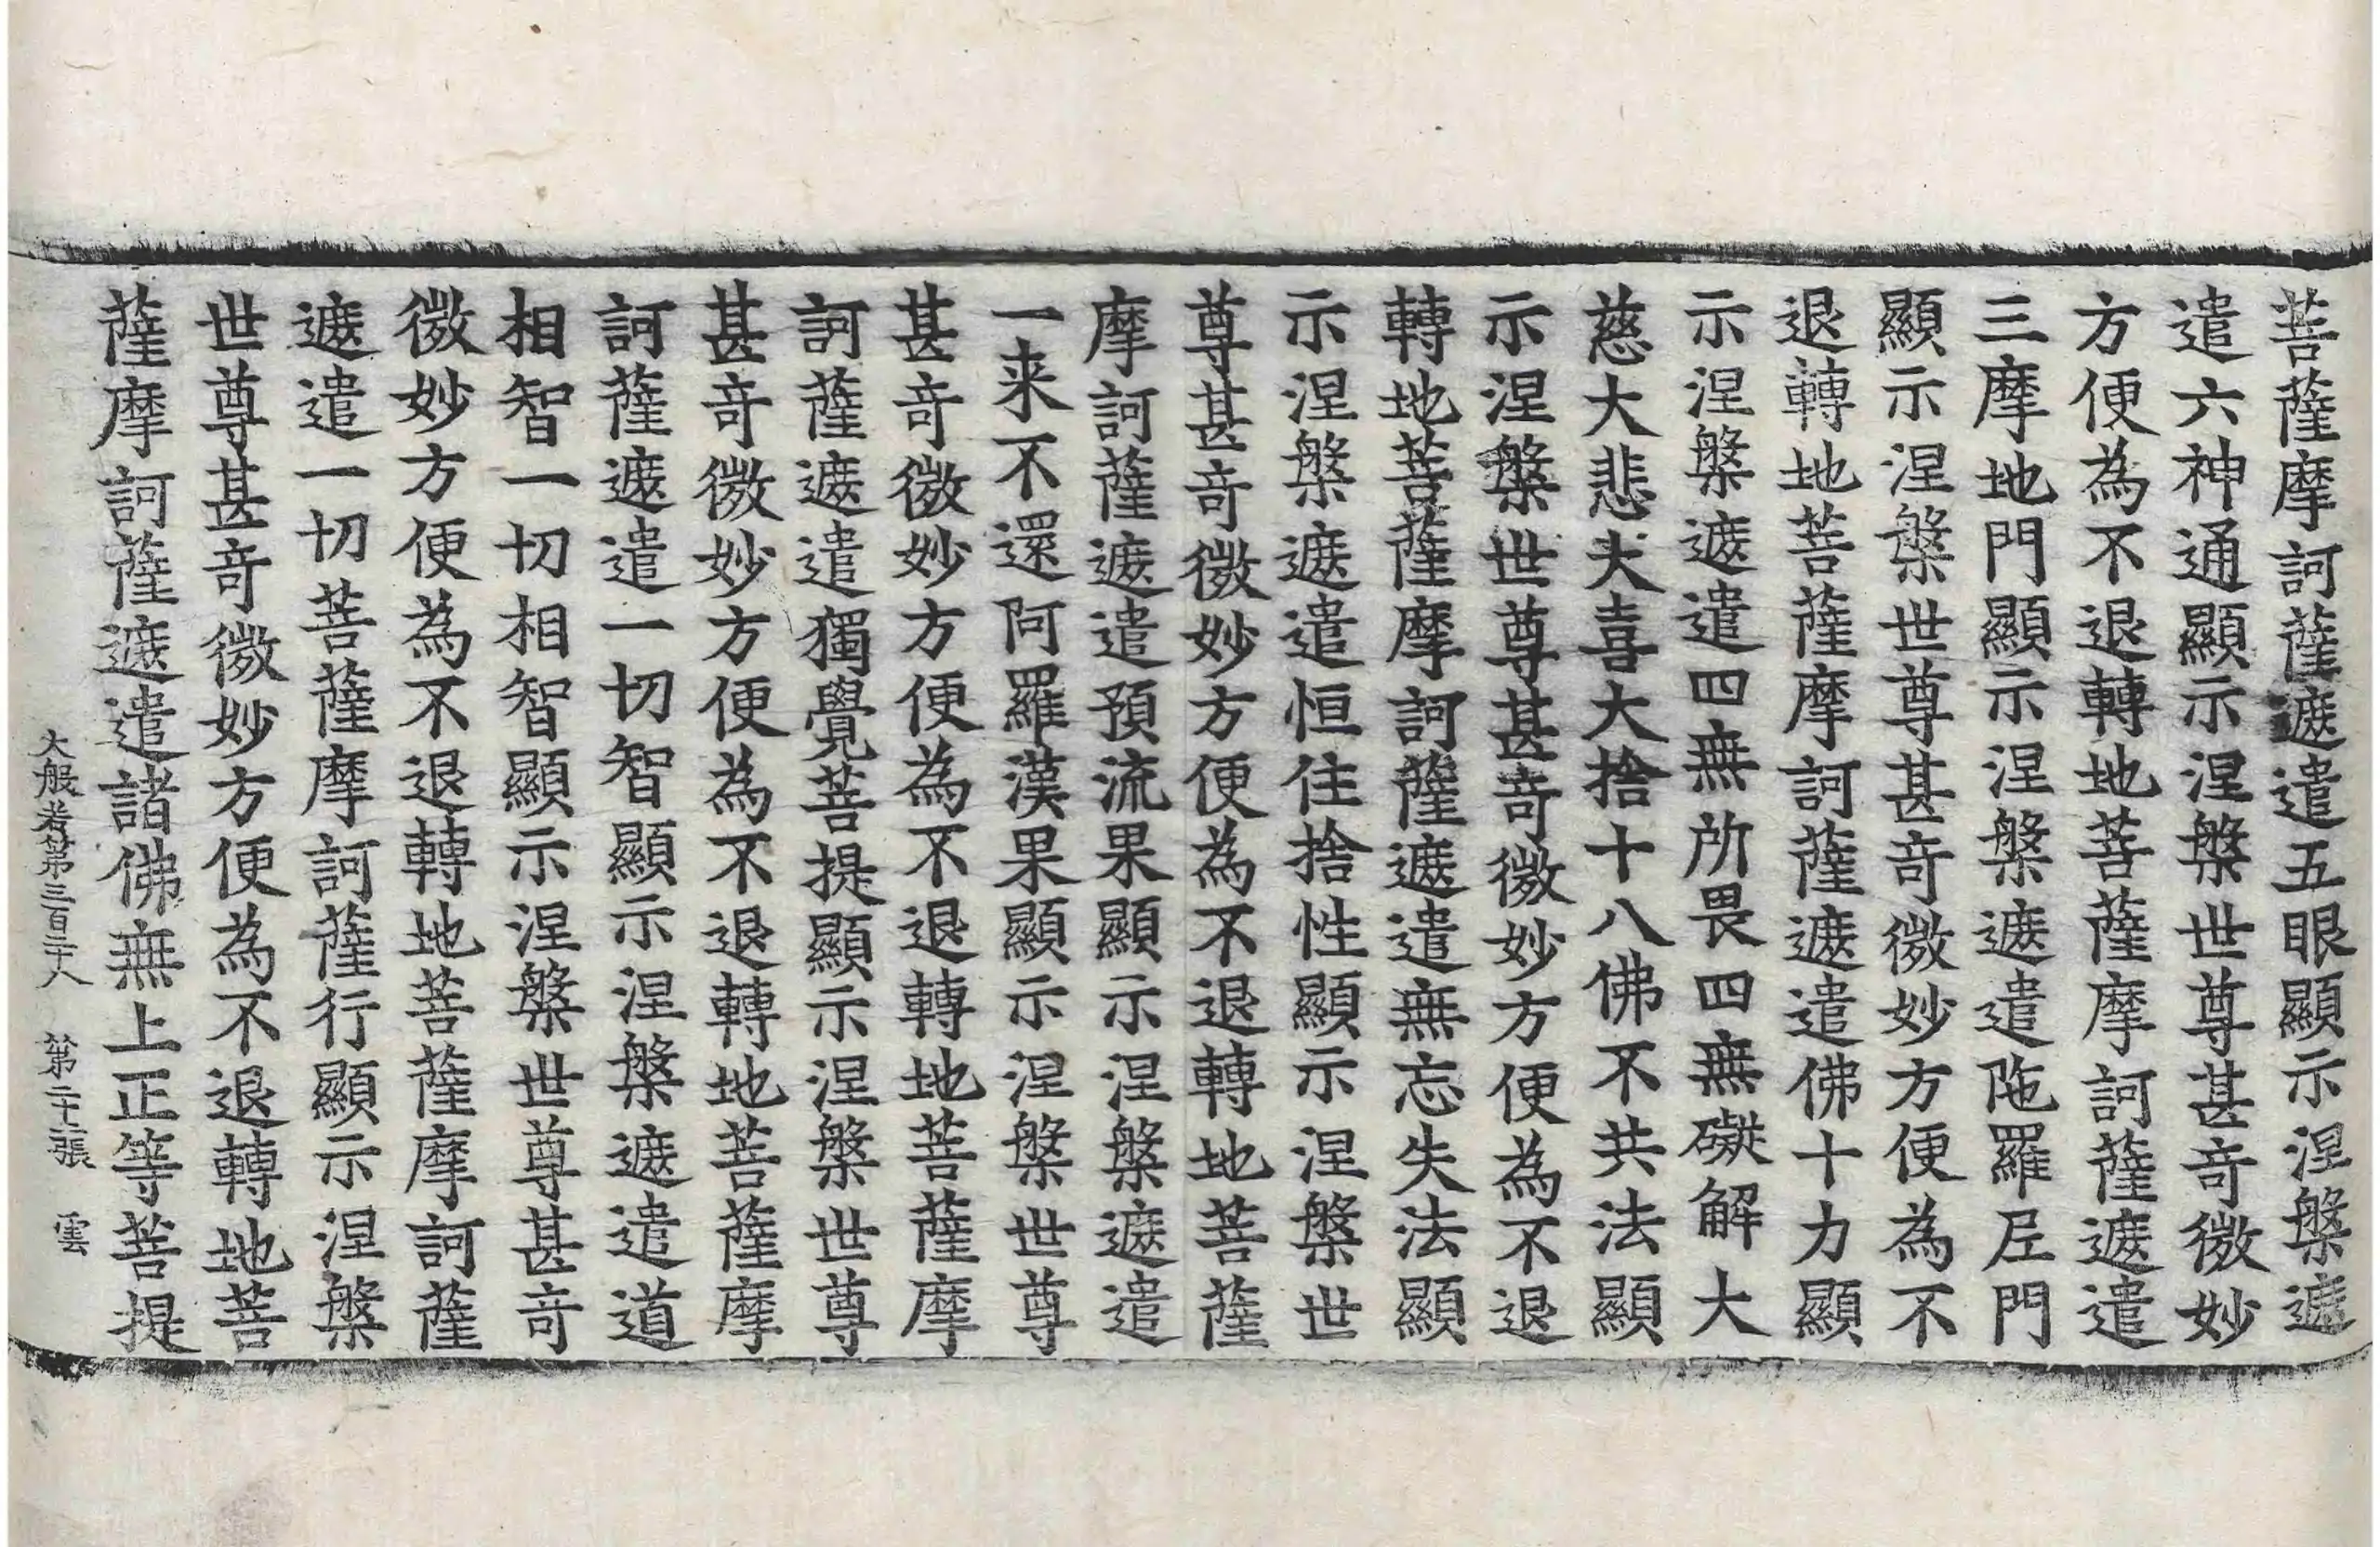 菩薩摩訶薩遮遣五眼顯示涅槃遮
遣六神通顯示涅槃世尊甚奇微妙
方便為不退轉地菩薩摩訶薩遮遣
三摩地門顯示涅槃遮遣陁羅尼門
顯示涅槃世尊甚奇微妙方便為不
退轉地菩薩摩訶薩遮遣佛十力顯
示涅槃遮遣四無所畏四無礙解大
慈大悲大喜大捨十八佛不共法顯
示涅槃世尊甚奇微妙方便為不退
轉地菩薩摩訶薩遮遣無忘失法顯
示涅槃遮遣恒住捨性顯示涅槃世
尊甚奇微妙方便為不退轉地菩薩
摩訶薩遮遣預流果顯示涅槃遮遣
一来不還阿羅漢果顯示涅槃世尊
甚奇微妙方便為不退轉地菩薩摩
訶薩遮遣獨覺菩提顯示涅槃世尊
甚奇微妙方便為不退轉地菩薩摩
訶薩遮遣一切智顯示涅槃遮遣道
相智一切相智顯示涅槃世尊甚奇
微妙方便為不退轉地菩薩摩訶薩
遮遣一切菩薩摩訶薩行顯示涅槃
世尊甚奇微妙方便為不退轉地菩
薩摩訶薩遮遣諸佛無上正等菩提
大般若第三百二十八 第二十二張 雲